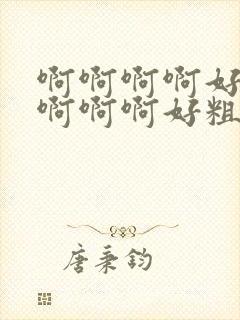 啊啊啊啊好
啊啊啊好粗
唐秉钧